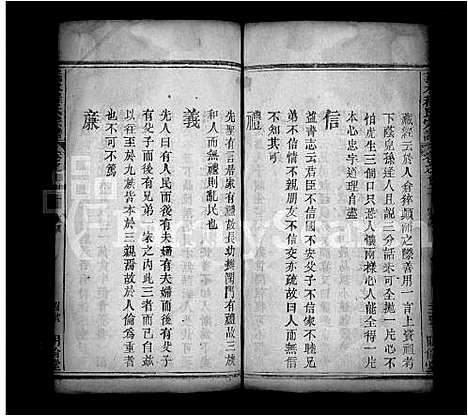 藏經云於人倉猝顛沛之際善用一言上資祖考
下蔭皇孫逢人且說三分話未可全拋一片心不
怕虎生三個口只恐人懷兩樣心人能全得一片
本心忠字道理自盡
信
益書志云君臣不信國不安父子不信家不睦兄
弟不信情不親朋友不信交亦疏故曰人而無信
不知其可
禮
先聖有言居家有禮故長幼辨閨門有禮故三族
和人而無禮則亂民也
義
先人曰有人民而後有夫婦有夫婦而後有父子
有父子而後有兄弟一家之內此三者而已矣自茲
以往至於九族皆本於三親焉故於人倫為重者
也不可不篤
廉
明倫堂